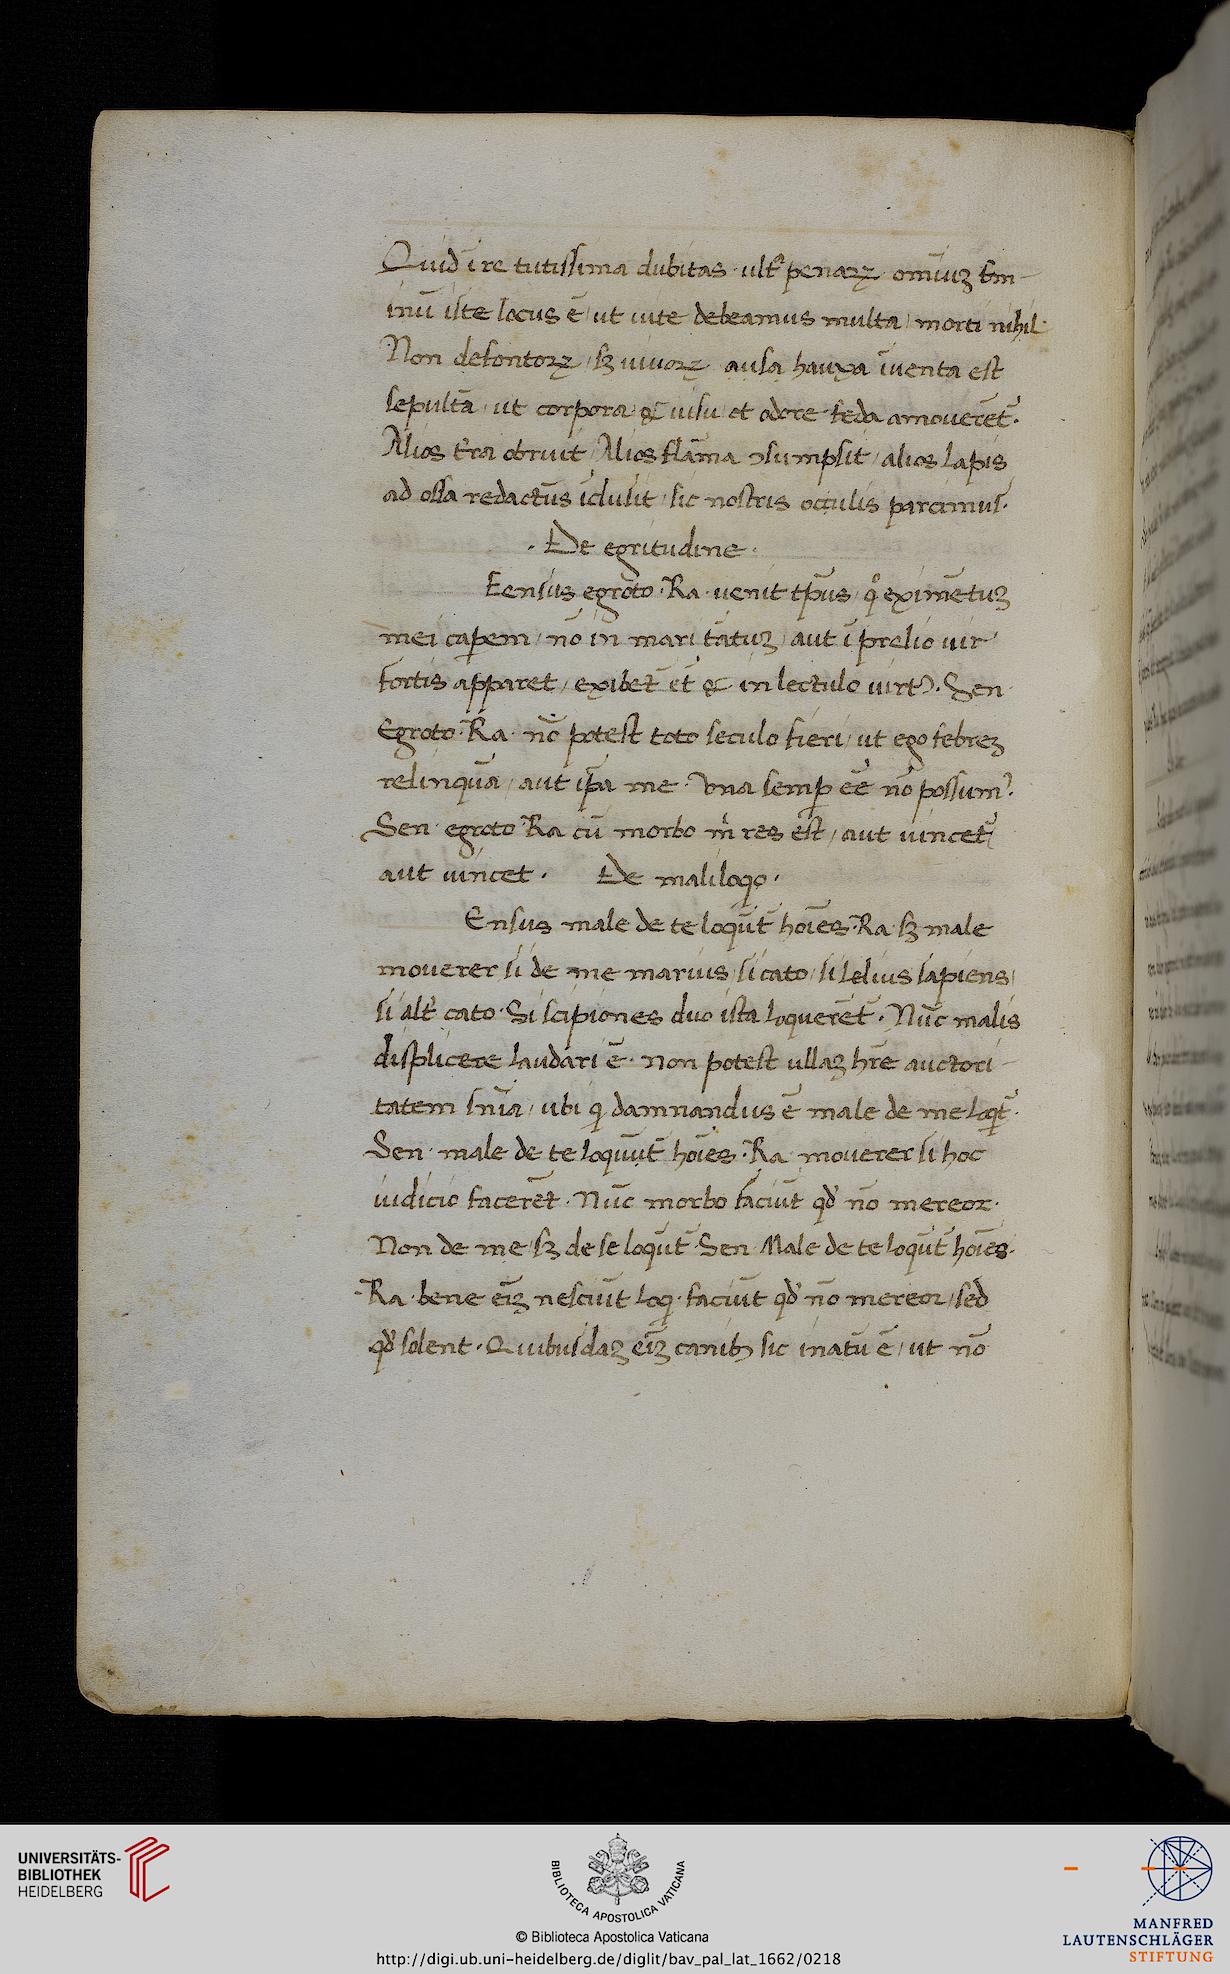 Quid ire tutissima dubitas · ultͬ penaꝝ · omīuꝫ tm̄
inū iste locus ē / ut uite debeamus multa / morti nihil ·
Non defontoꝝ / sꝫ uiuoꝝ ausa hauxa īuenta est
sepultā / ut corpora & uisu et odore feda amouerēt᷑ ·
Alios t̄ra obruit / Alios flāma ꝯsumpsit / alios lapis
ad ossa redactūs īclusit / sic nostris occulis parcimus ·
· De egritudine ·
Eensus egroto · Ra · uenit tp̄us / qͦ eximētuꝫ
mei capem / nō in mari tātuꝫ / aut ī prelio uir
fortis apparet / exibet᷑ et̄ & in lectulo uirtꝰ · Sen
Egroto · Ra · nō potest toto seculo fieri / ut ego febreꝫ
relinquā / aut ip̄a me · Una semꝑ eē nō possumꝰ ·
Sen · egroto · Ra cū morbo m̄ res est / aut uincet᷑
aut uincet · De maliloqo ·
Ensus male de te loqūt᷑ hoīes · Ra · sꝫ male
mouerer si de me marius / si cato / si lelius sapiens /
si alt̄ cato · Si scipiones duo ista loquerēt᷑ · Nūc malis
displicere laudari ē · non potest ullaꝫ hr̄e auctori
tatem sn̄ia / ubi q damnandus ē male de me loqt᷑ ·
Sen · male de te loquūt᷑ hoīes · Ra · mouerer si hoc
iudicio facerēt · Nūc morbo faciūt qd̓ nō mereor ·
Non de me / sꝫ de se loqūt᷑ · Sen · Male de te loqūt᷑ hoīes ·
· Ra · bene eīꝫ nesciūt loq · faciūt qd̓ nō mereor / sed
qd̓ solent · Quibusdaꝫ eīꝫ canibꝫ sic inatū ē / ut nō
UNIVERSITÄTS-
BIBLIOTHEK
HEIDELBERG
BIBLIOTECA APOSTOLICA VATICANA
© Biblioteca Apostolica Vaticana
http://digi.ub.uni-heidelberg.de/diglit/bav_pal_lat_1662/0218
MANFRED
LAUTENSCHLÄGER
STIFTUNG